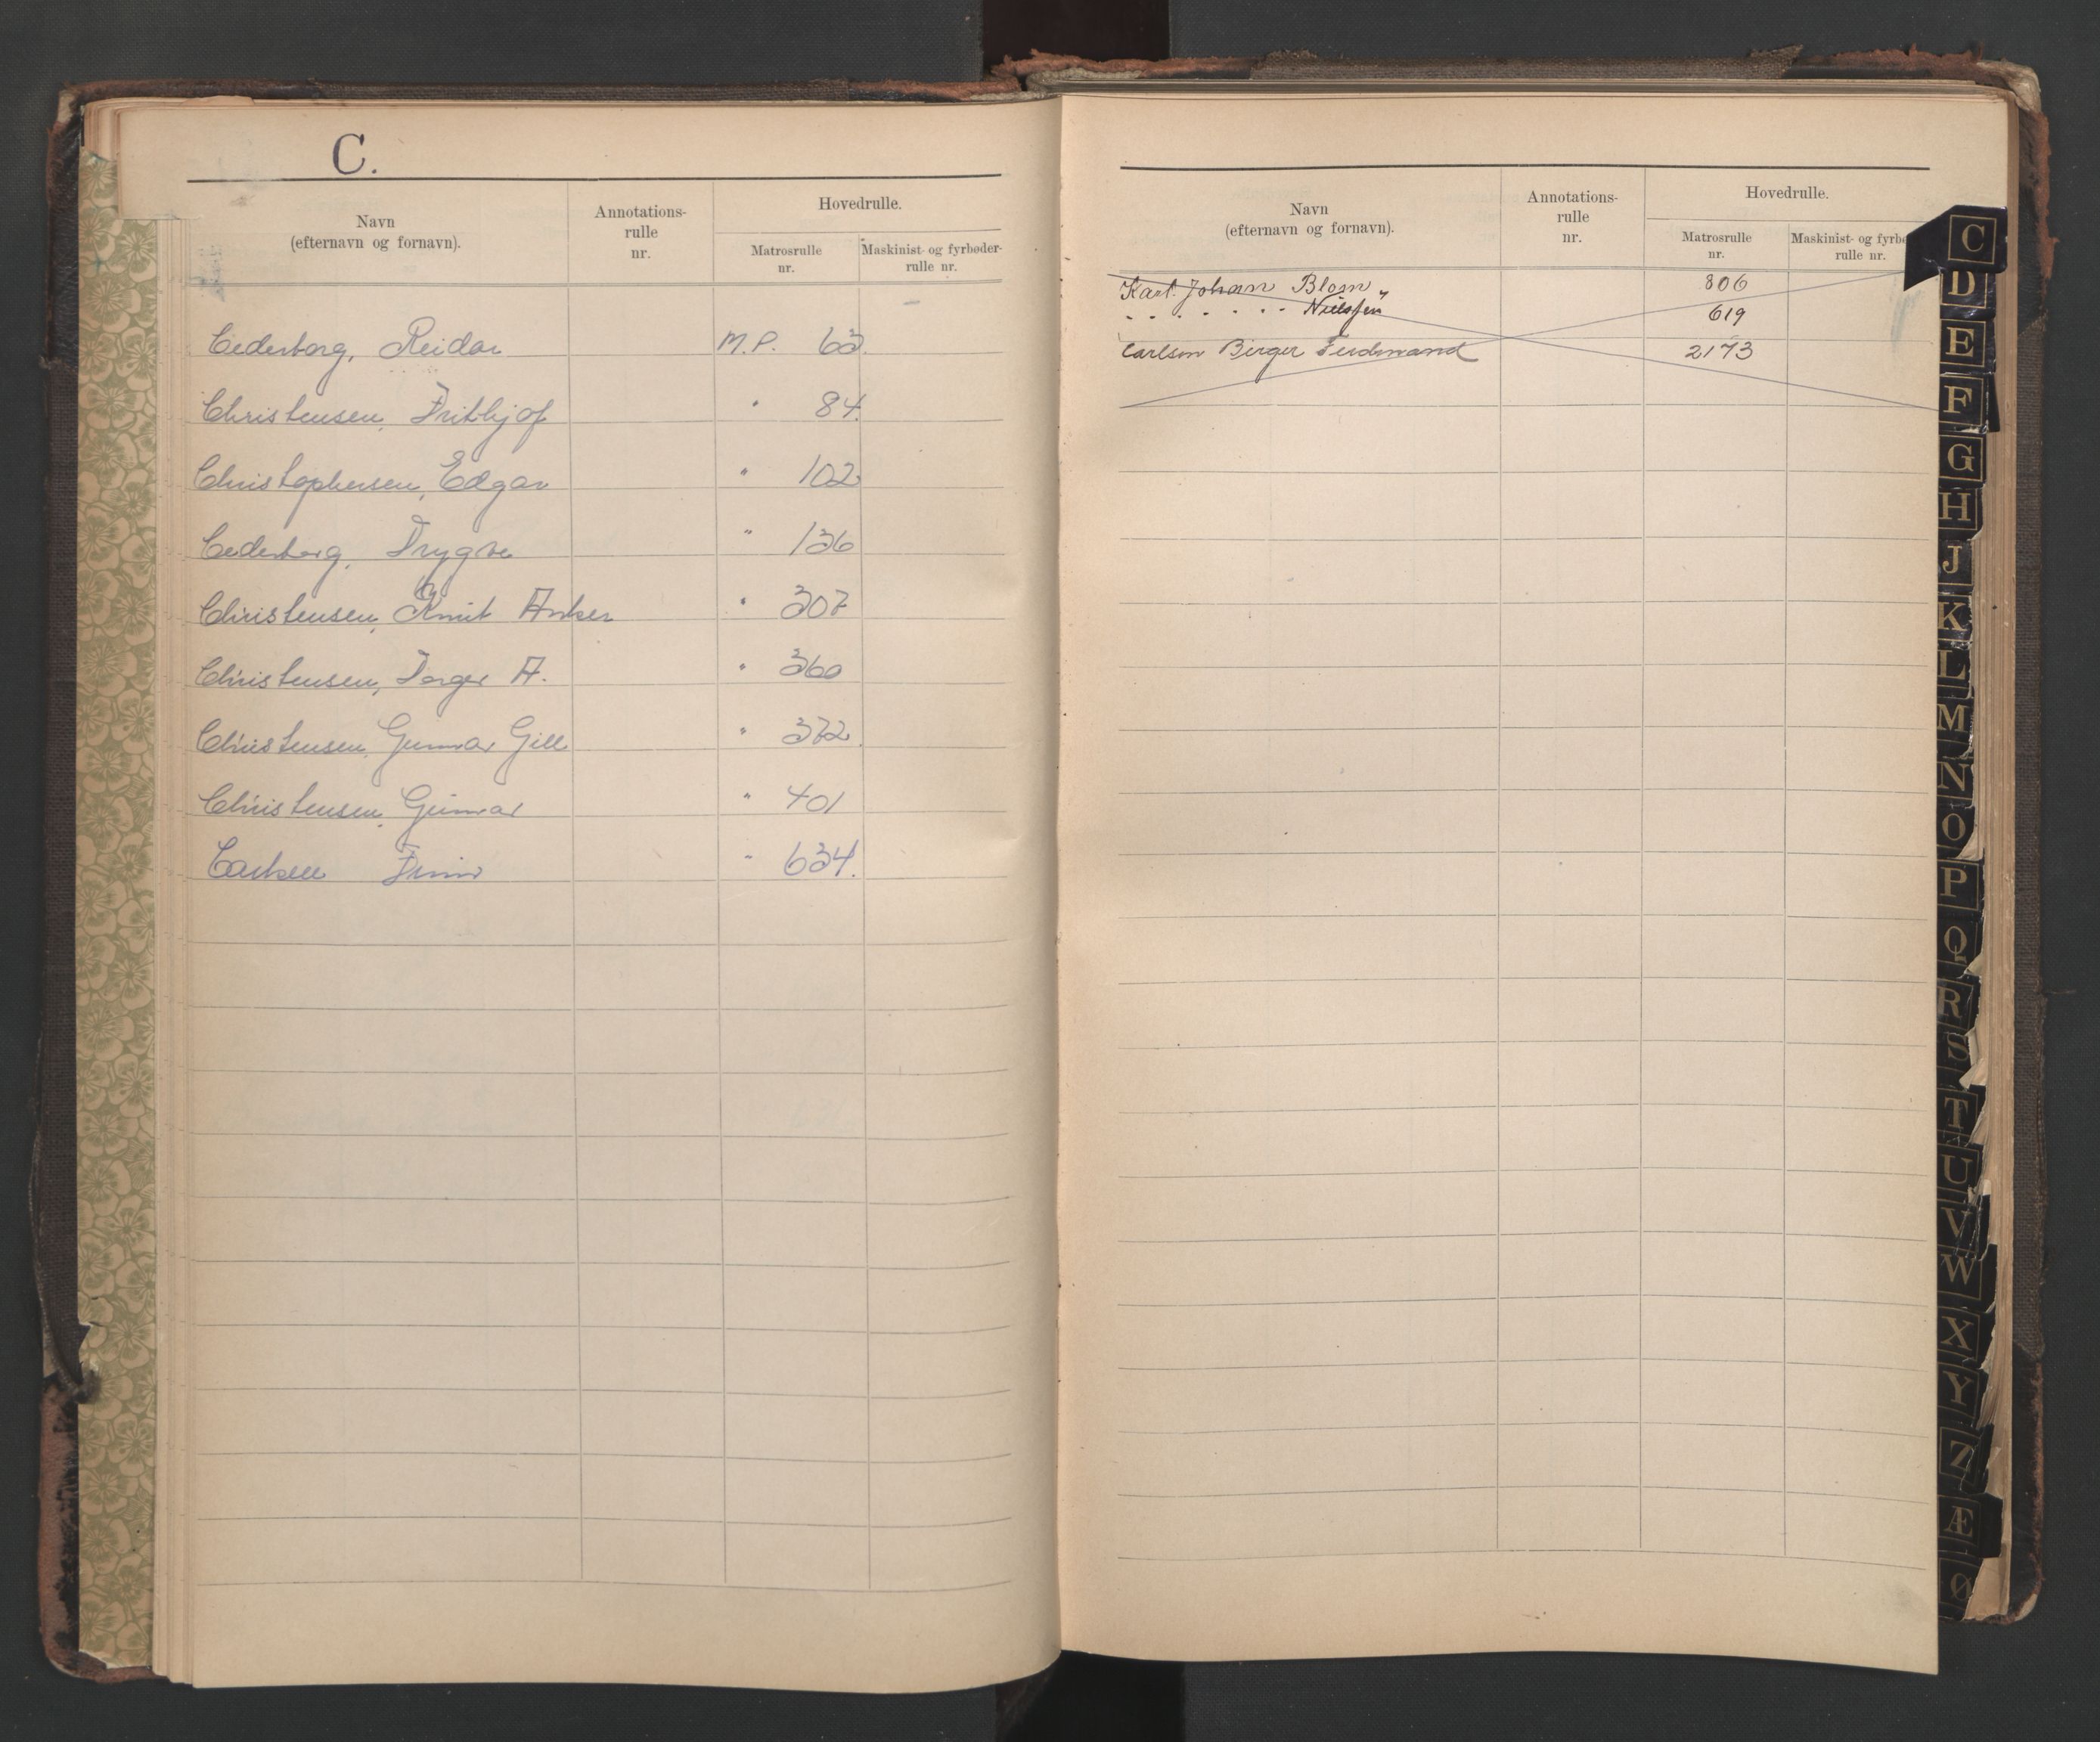 C.
Navn
(efternavn og fornavn).
Annotations-
rulle
nr.
Hovedrulle.
Matrosrulle
nr.
Maskinist- og fyrbøder-
rulle nr.
Cederborg, Reidar M.P. 63.
Christensen, Frithjof " 84.
Christophersen, Edgar " 102
Cederborg, Trygve " 136
Christensen, Knut Anker " 307
Christensen, Torger A. " 360
Christensen, Gunnar Gill " 372
Christensen, Gunnar " 401
Finn " 634.
Navn
(efternavn og fornavn).
Annotations-
rulle
nr.
Hovedrulle.
Matrosrulle
nr.
Maskinist- og fyrbø
rulle nr.
Karl. Johan Blom 806
" Nielssen 619
Carlsen Birger Ferdinand 2173
C
D
E
F
G
H
J
K
L
M
N
O
P
Q
R
S
T
U
V
W
X
Y
Z
Æ
Ø